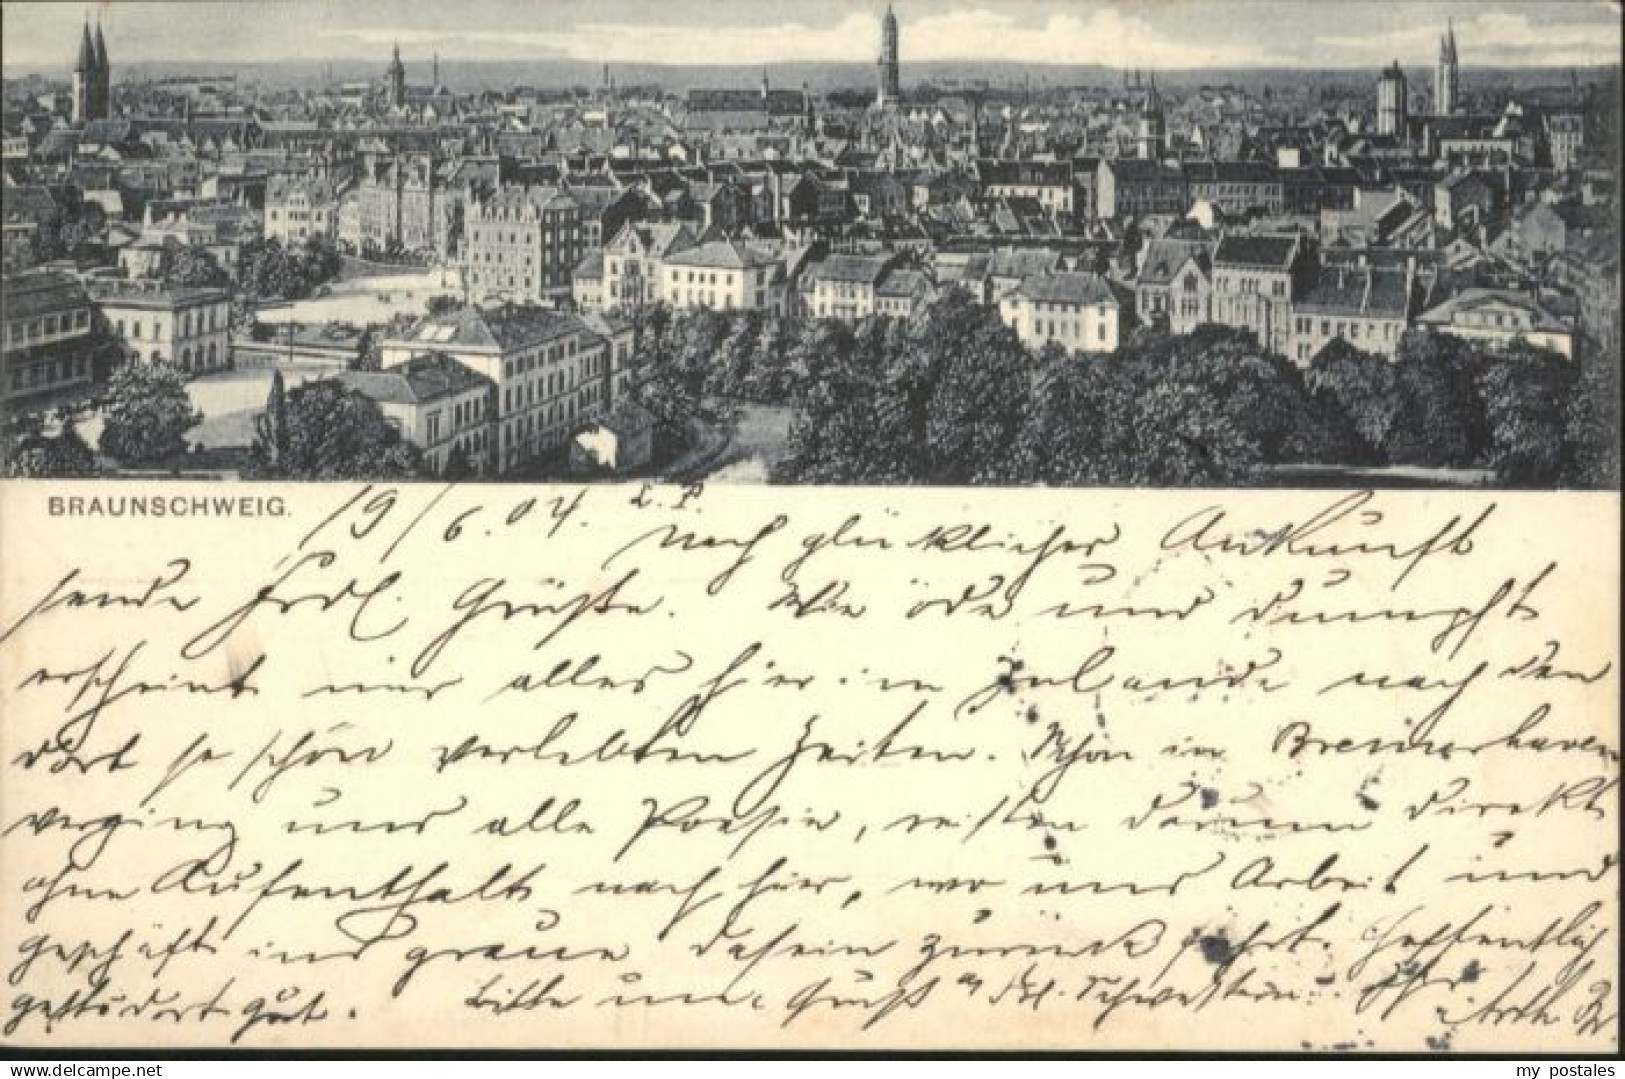 BRAUNSCHWEIG.
19/6.04. L. P.
Nach glücklicher Ankunft
sende frdl. Grüße. Wie öde und dumpf
erscheint mir alles hier im Inlande nach den
dort so schön verlebten Zeiten. Schon in Bremerhaven
verging uns alle Poesie, reisten darum direkt
ohne Aufenthalt nach hier, wo uns Arbeit und
Geschäft ins graue Dasein zurück führt. Hoffentlich
gehts dort gut. Bitte um Gruß a. Frl. Schwestern. Ihr
delcampe.net
my_postales